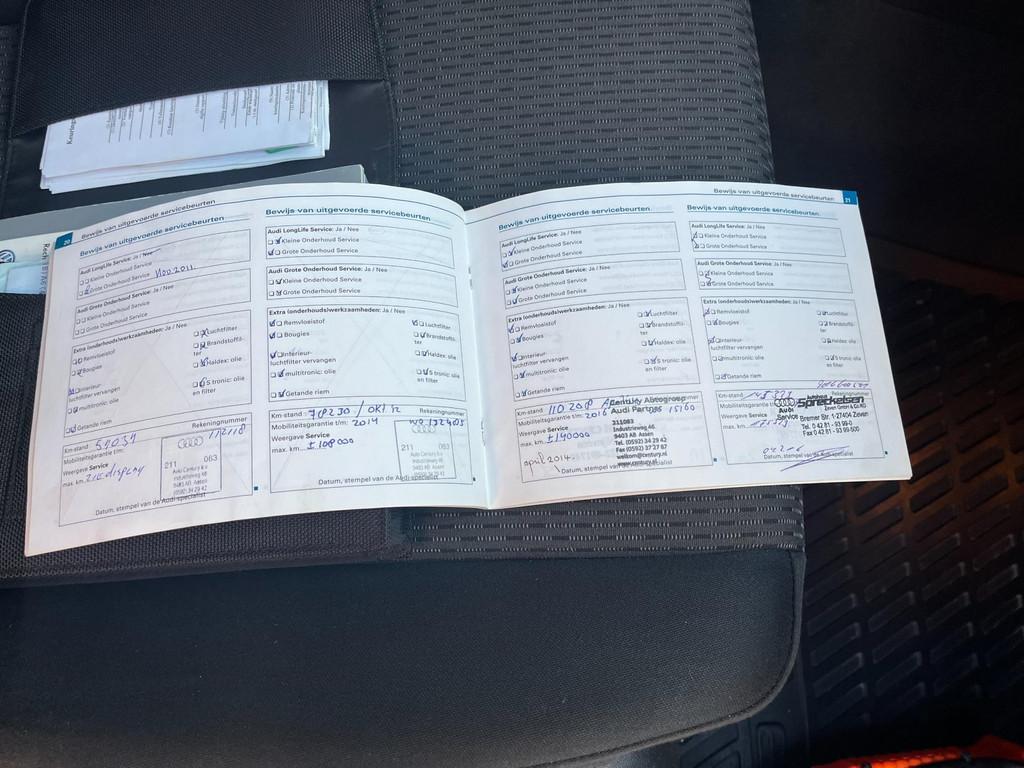 Keuring
20
Bewijs van uitgevoerde servicebeurten
Bewijs van uitgevoerde servicebeurten
Audi LongLife Service: Ja / Nee
Kleine Onderhoud Service
Grote Onderhoud Service
Nov. 2011
Audi Grote Onderhoud Service: Ja / Nee
Kleine Onderhoud Service
Grote Onderhoud Service
Extra (onderhouds)werkzaamheden: Ja / Nee
Remvloeistof
Bougies
Interieur-
luchtfilter vervangen
multitronic: olie
Getande riem
Luchtfilter
Brandstoffil-
ter
Haldex: olie
S tronic: olie
en filter
Km-stand
Rekeningnummer
112118
Mobiliteitsgarantie t/m:
Weergave Service
max. km. ZIE DISPLAY
211 083
Auto Century b.v.
Industrieweg 46
9403 AB Assen
(0592) 34 29 42
Datum, stempel van de Audi-specialist
Bewijs van uitgevoerde servicebeurten
Audi LongLife Service: Ja / Nee
Kleine Onderhoud Service
Grote Onderhoud Service
Audi Grote Onderhoud Service: Ja / Nee
Kleine Onderhoud Service
Grote Onderhoud Service
Extra (onderhouds)werkzaamheden: Ja / Nee
Remvloeistof
Bougies
Interieur-
luchtfilter vervangen
multitronic: olie
Getande riem
Luchtfilter
Brandstoffil-
ter
Haldex: olie
S tronic: olie
en filter
Km-stand: 78230 / OKT 12
Rekeningnummer
Mobiliteitsgarantie t/m: 2014
Weergave Service
max. km. ± 108000
211 083
Auto Century b.v.
Industrieweg 46
9403 AB Assen
(0592) 34 29 42
Datum, stempel van de Audi-specialist
Bewijs van uitgevoerde servicebeurten
21
Bewijs van uitgevoerde servicebeurten
Audi LongLife Service: Ja / Nee
Kleine Onderhoud Service
Grote Onderhoud Service
Audi Grote Onderhoud Service: Ja / Nee
Kleine Onderhoud Service
Grote Onderhoud Service
Extra (onderhouds)werkzaamheden: Ja / Nee
Remvloeistof
Bougies
Interieur-
luchtfilter vervangen
multitronic: olie
Getande riem
Luchtfilter
Brandstoffil-
ter
Haldex: olie
S tronic: olie
en filter
Km-stand: 110 208
Mobiliteitsgarantie t/m: 2016
Weergave Service
max. km. ± 140000
april 2014
Century Autogroep
Audi Partner
15160
211083
Industrieweg 46
9403 AB Assen
Tel. (0592) 34 29 42
Fax (0592) 37 27 87
welkom@century.nl
www.century.nl
Datum, stempel van de Audi-specialist
Bewijs van uitgevoerde servicebeurten
Audi LongLife Service: Ja / Nee
Kleine Onderhoud Service
Grote Onderhoud Service
Audi Grote Onderhoud Service: Ja / Nee
Kleine Onderhoud Service
Grote Onderhoud Service
Extra (onderhouds)werkzaamheden: Ja / Nee
Remvloeistof
Bougies
Interieur-
luchtfilter vervangen
multitronic: olie
Getande riem
Luchtfilter
Brandstoffil-
ter
Haldex: olie
S tronic: olie
en filter
Km-stand
Mobiliteitsgarantie
Weergave Service
max. km.
Audi
Service
Autohaus
Spreckelsen
Zeven GmbH & Co KG
Bremer Str. 1-27404 Zeven
Tel. 0 42 81 - 93 99-0
Fax 0 42 81 - 93 99-500
Datum, stempel van de Audi-specialist